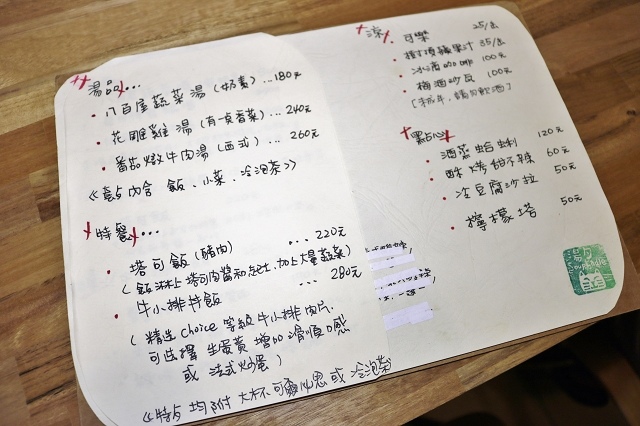 湯品...
八百屋蔬菜湯(奶素)...180元
花雕雞湯(有一衰香菜)...240元
番茄燉牛肉湯(西式)...260元
《套餐內含 飯、小菜、冷泡茶》
特餐...
塔可飯(豬肉) ...220元
(飯淋上塔可肉醬和起士,加上大量蔬菜)
牛小排丼飯 ...280元
(精選Choice等級牛小排肉片
可選擇 生蛋黃 增加滑順口感
或 法式炒蛋)
《特餐均附 大杯可爾必思 或 冷泡茶
涼
可樂 25/缶
樹頂蘋果汁 35/缶
冰滴咖啡 100元
梅酒沙瓦 100元
[未成年,請勿飲酒]
點心
酒蒸蛤蜊 120元
酥烤甜不辣 60元
冷豆腐沙拉 50元
檸檬塔 50元